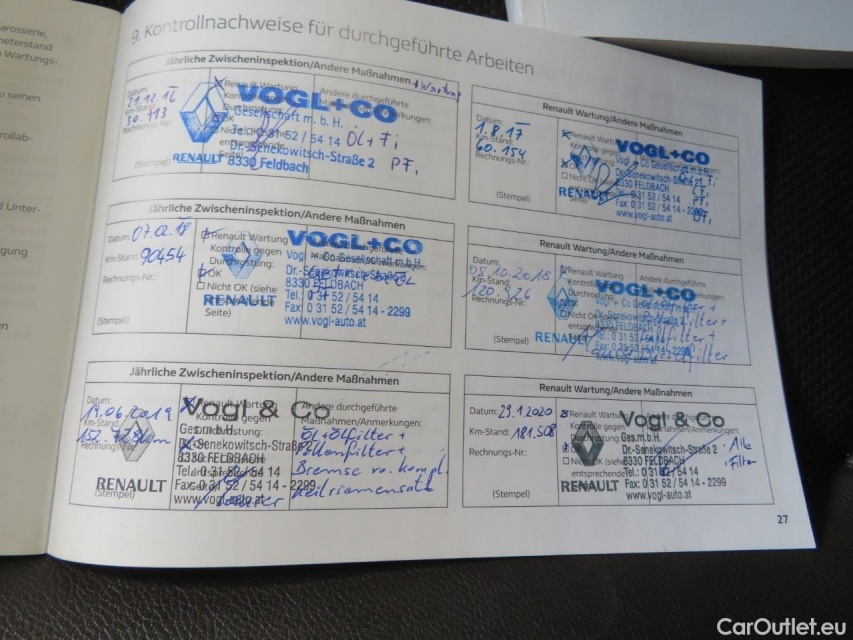 arosserie,
neterstand
n Wartungs-
u seinen
rollab-
d Unter-
gung
en
9. Kontrollnachweise für durchgeführte Arbeiten
Jährliche Zwischeninspektion/Andere Maßnahmen + Wartung
Datum:
21.12.16
Km-Stand:
30.713
Rechnungs-Nr.:
(Stempel)
Renault Wartung
Kontrolle gegen
Durchrostung:
OK
Andere durchgeführte
VOGL+CO
Gesellschaft m. b. H.
Tel. 0 31 52 / 54 14
Dr. Senekowitsch-Straße 2
8330 Feldbach
RENAULT
Öl + Fi
PFi
Renault Wartung/Andere Maßnahmen
Datum:
1.8.17
Km-Stand:
60.154
Rechnungs-Nr.:
(Stempel)
Renault Wartung
Kontrolle gegen
VOGL+CO
Vogl + Co Gesellschaft m.b.H.
Dr.-Senekowitsch-Straße 2
8330 FELDBACH
Tel.: 0 31 52 / 54 14
Fax: 0 31 52 / 54 14 - 2299
www.vogl-auto.at
RENAULT
Jährliche Zwischeninspektion/Andere Maßnahmen
Datum: 07.02.18
Km-Stand: 90454
Rechnungs-Nr.:
(Stempel)
Renault Wartung
Kontrolle gegen
Durchrostung:
OK
Nicht OK (siehe
Seite)
VOGL+CO
Vogl + Co Gesellschaft m.b.H.
Dr.-Senekowitsch-Straße 2
8330 FELDBACH
Tel.: 0 31 52 / 54 14
Fax: 0 31 52 / 54 14 - 2299
www.vogl-auto.at
RENAULT
Renault Wartung/Andere Maßnahmen
Datum:
08.10.2018
Km-Stand:
Rechnungs-Nr.:
(Stempel)
Renault Wartung
Kontrolle gegen
Durchrostung
OK
Nicht OK
Andere durchgeführte
VOGL+CO
Vogl + Co Gesellschaft m.b.H.
Dr.-Senekowitsch-Straße
8330 FELDBACH
Tel.: 0 31 52 / 54 14
www.vogl-auto.at
RENAULT
Jährliche Zwischeninspektion/Andere Maßnahmen
Datum:
19.06.2019
Km-Stand:
Rechnungs-Nr.:
(Stempel)
Renault Wartung
Kontrolle gegen
Andere durchgeführte
Maßnahmen/Anmerkungen:
Vogl & Co
Ges.m.b.H.
Dr.-Senekowitsch-Straße 2
8330 FELDBACH
Tel.: 0 31 52 / 54 14
Fax: 0 31 52 / 54 14 - 2299
www.vogl-auto.at
RENAULT
Öl + Ölfilter +
Pollenfilter +
Bremse vo. kompl.
Keilriemensatz
Renault Wartung/Andere Maßnahmen
Datum: 29.1.2020
Km-Stand: 181.508
Rechnungs-Nr.:
(Stempel)
Renault Wartung
Kontrolle gegen
Andere durchgeführte
Maßnahmen/Anmerkungen:
Vogl & Co
Ges.m.b.H.
Dr.-Senekowitsch-Straße 2
8330 FELDBACH
Tel.: 0 31 52 / 54 14
Fax: 0 31 52 / 54 14 - 2299
www.vogl-auto.at
RENAULT
Alle
Filter
27
CarOutlet.eu